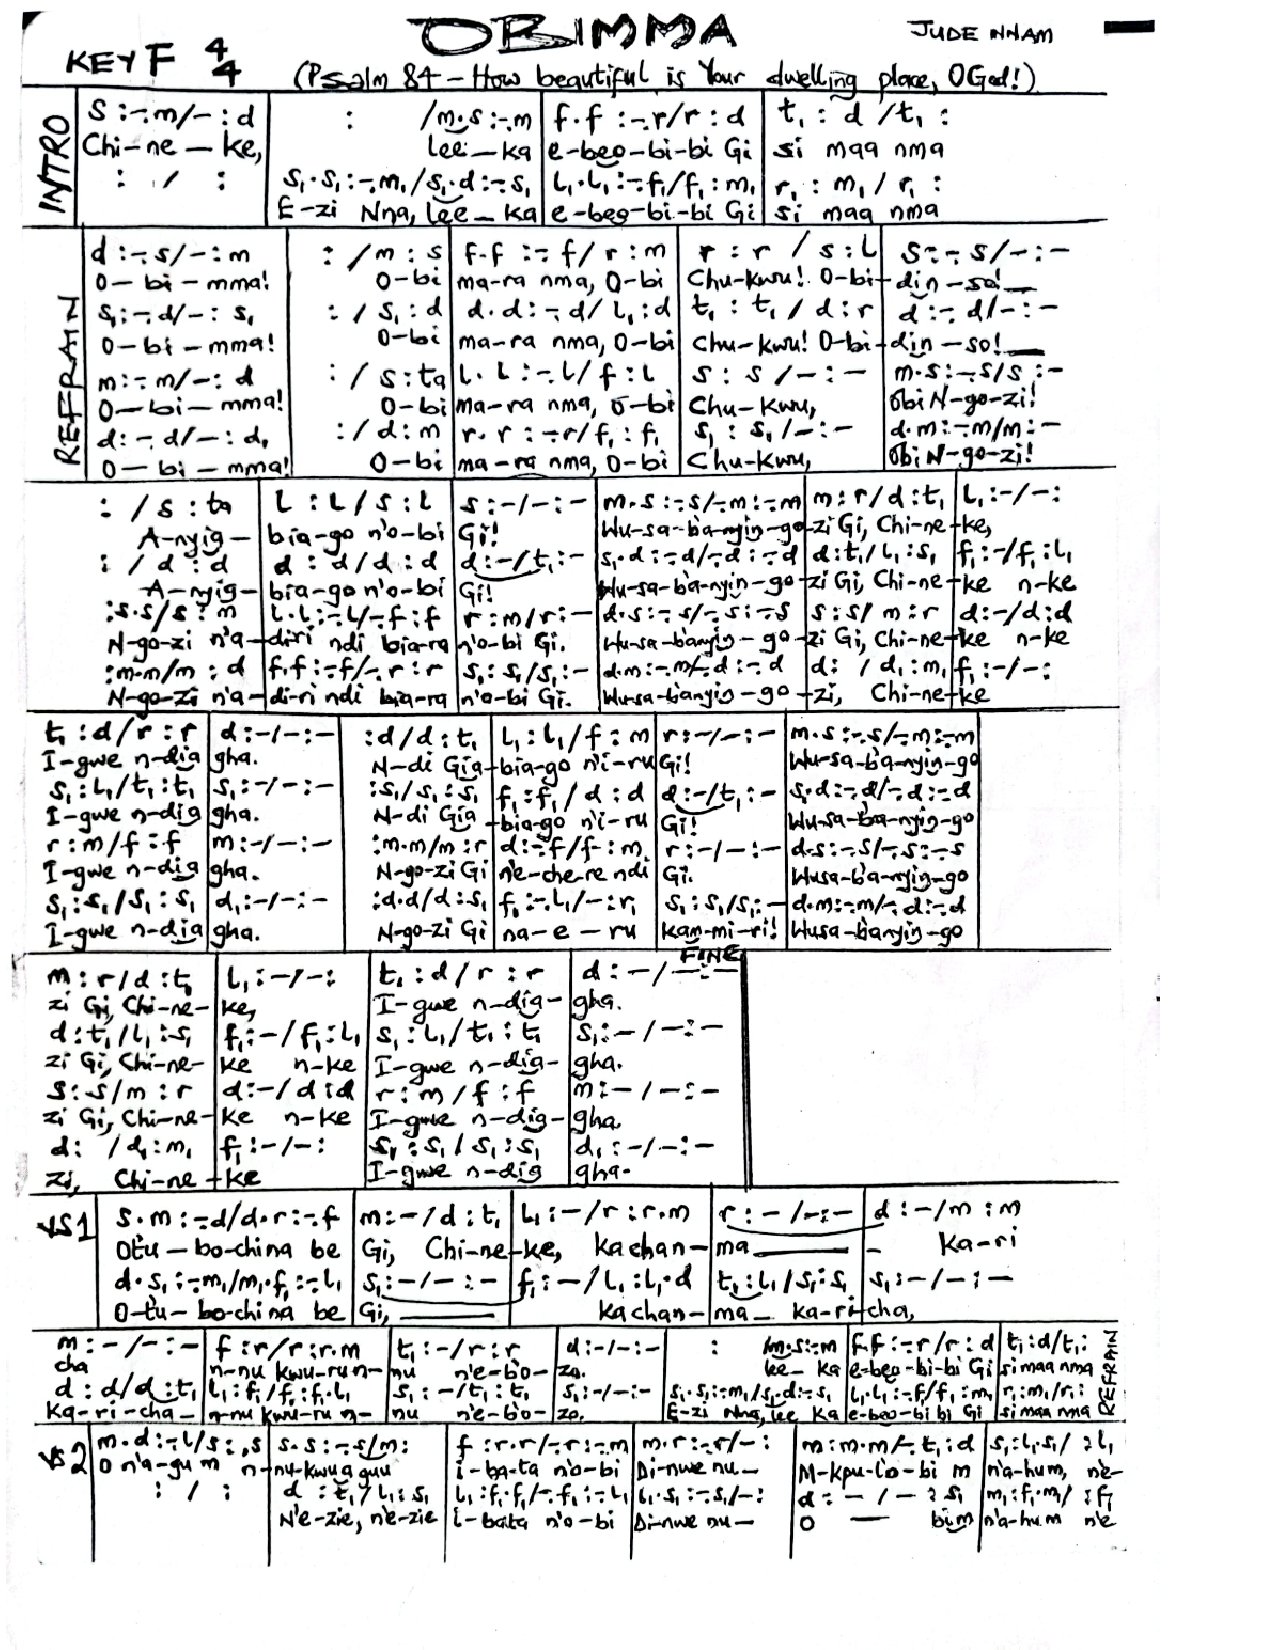 OBIMMA
JUDE NNAM
KEY F 4/4
(Psalm 84 - How beautiful is Your dwelling place, O God!)
INTRO
s :-.m/- : d | : /m.s :-.m | f.f :-.r/r : d | t₁ : d /t₁ :
Chi-ne-ke, | lee-ka | e-beo-bi-bi Gi | si maa nma
: / : | s₁.s₁ :-.m₁/s₁.d :-.s₁ | l₁.l₁ :-.f₁/f₁ : m₁ | r₁ : m₁ / r₁ :
E-zi Nna, lee-ka | e-beo-bi-bi Gi | si maa nma
REFRAIN
d :-.s/- : m | : / m : s | f.f :-.f/ r : m | r : r / s : l | s :-.s/- : -
O-bi-mma! | O-bi | ma-ra nma, O-bi | Chu-kwu! O-bi- | din-so!
s₁ :-.d/- : s₁ | : / s₁ : d | d.d :-.d/ l₁ : d | t₁ : t₁ / d : r | d :-.d/- : -
O-bi-mma! | O-bi | ma-ra nma, O-bi | Chu-kwu! O-bi- | din-so!
m :-.m/- : d | : / s : ta | l.l :-.l/ f : l | s : s /- : - | m.s :-.s/s : -
O-bi-mma! | O-bi | ma-ra nma, O-bi | Chu-kwu, | Obi N-go-zi!
d :-.d/- : d₁ | : / d : m | r.r :-.r/f₁ : f₁ | s₁ : s₁ /- : - | d.m :-.m/m : -
O-bi-mma! | O-bi | ma-ra nma, O-bi | Chu-kwu, | Obi N-go-zi!
: / s : ta | l : l / s : l | s :-/- : - | m.s :-.s/-.m :-.m | m : r/d : t₁ | l₁ :-/- :
A-nyig- | bia-go n'o-bi | Gi! | Wu-sa-ba-nyin-go- | zi Gi, Chi-ne- | ke,
: / d : d | d : d / d : d | d :-/t₁ : - | s₁.d :-.d/-.d :-.d | d : t₁/l₁ : s₁ | f₁ :-/f₁ : l₁
A-nyig- | bia-go n'o-bi | Gi! | Wu-sa-ba-nyin-go- | zi Gi, Chi-ne- | ke n-ke
: s.s/s : m | l.l :-.l/-.f : f | r : m/r : - | d.s :-.s/-.s :-.s | s : s/ m : r | d :-/d : d
N-go-zi n'a- | diri ndi bia-ra | n'o-bi Gi. | Wu-sa-banyin-go- | zi Gi, Chi-ne- | ke n-ke
: m.m/m : d | f.f :-.f/-.r : r | s₁ : s₁/s₁ : - | d.m :-.m/-.d :-.d | d : / d₁ : m₁ | f₁ :-/- :
N-go-zi n'a- | di-ri ndi bia-ra | n'o-bi Gi. | Wu-sa-banyin-go- | zi, Chi-ne- | ke
t₁ : d/ r : r | d :-/- : - | : d/ d : t₁ | l₁ : l₁/ f : m | r :-/- : - | m.s :-.s/-.m :-.m
I-gwe n-dia | gha. | N-di Gia- | bia-go n'i-ru | Gi! | Wu-sa-ba-nyin-go
s₁ : l₁/ t₁ : t₁ | s₁ :-/- : - | : s₁/ s₁ : s₁ | f₁ : f₁ / d : d | d :-/t₁ : - | s₁.d :-.d/-.d :-.d
I-gwe n-dig | gha. | N-di Gia | bia-go n'i-ru | Gi! | Wu-sa-ba-nyin-go
r : m/ f : f | m :-/- : - | : m.m/m : r | d :-.f/f : m | r :-/- : - | d.s :-.s/-.s :-.s
I-gwe n-dia | gha. | N-go-zi Gi | n'e-che-re ndi | Gi. | Wusa-ba-nyin-go
s₁ : s₁/ s₁ : s₁ | d₁ :-/- : - | : d.d/d : s₁ | f₁ :-.l₁/- : r₁ | s₁ : s₁/s₁ : - | d.m :-.m/-.d :-.d
I-gwe n-dia | gha. | N-go-zi Gi | na-e-ru | kam-mi-ri! | Wusa-banyin-go
FINE
m : r/d : t₁ | l₁ :-/- : | t₁ : d/ r : r | d :-/- : -
zi Gi, Chi-ne- | ke, | I-gwe n-dia- | gha.
d : t₁/l₁ : s₁ | f₁ :-/ f₁ : l₁ | s₁ : l₁/ t₁ : t₁ | s₁ :-/- : -
zi Gi, Chi-ne- | ke n-ke | I-gwe n-dia- | gha.
s : s/m : r | d :-/ d : d | r : m/ f : f | m :-/- : -
zi Gi, Chi-ne- | ke n-ke | I-gwe n-dig- | gha
d : / d₁ : m₁ | f₁ :-/- : | s₁ : s₁ / s₁ : s₁ | d₁ :-/- : -
zi, Chi-ne- | ke | I-gwe n-dig | gha.
VS1
s.m :-.d/d.r :-.f | m :-/ d : t₁ | l₁ :-/r : r.m | r :-/- : - | d :-/m : m
Otu-bo-china be | Gi, Chi-ne- | ke, kachan- | ma - | ka-ri
d.s₁ :-.m₁/m₁.f₁ :-.l₁ | s₁ :-/- : - | f₁ :-/ l₁ : l₁.d | t₁ : l₁/ s₁ : s₁ | s₁ :-/- : -
O-tu-bo-china be | Gi, | kachan- | ma- ka-ri- | cha,
m :-/- : - | f : r/r : r.m | t₁ :-/ r : r | d :-/- : - | : m.s :-.m | f.f :-.r/r : d | t₁ : d/t₁ :
cha | n-nu kwu-ru n- | nu n'e-bo- | zo. | lee-ka | e-beo-bi-bi Gi | si maa nma
d : d/d : t₁ | l₁ : f₁/f₁ : f₁.l₁ | s₁ :-/t₁ : t₁ | s₁ :-/- : - | s₁.s₁ :-.m₁/s₁.d :-.s₁ | l₁.l₁ :-.f₁/f₁ : m₁ | r₁ : m₁/r₁ :
ka-ri-cha- | n-nu kwu-ru n- | nu n'e-bo- | zo. | E-zi Nna, lee ka | e-beo-bi bi Gi | si maa nma
REFRAIN
VS2
m.d :-.l/s : .s | s.s :-.s/m : | f : r.r/-.r :-.m | m.r :-.r/- : | m : m.m/-.t₁ : d | s₁ : l₁.s₁/ : l₁
O n'a-gu m n- | nu-kwu a guu | i-ba-ta n'o-bi | Di-nwe nu- | M-kpu-lo-bi m | n'a-hum, ne-
: / : | d : t₁ / l₁ : s₁ | l₁ : f₁.f₁/-.f₁ :-.l₁ | l₁.s₁ :-.s₁/- : | d :-/- : s₁ | m₁ : f₁.m₁/ : f₁
N'e-zie, n'e-zie | i-bata n'o-bi | Di-nwe nu- | O - bim | n'a-hum n'e